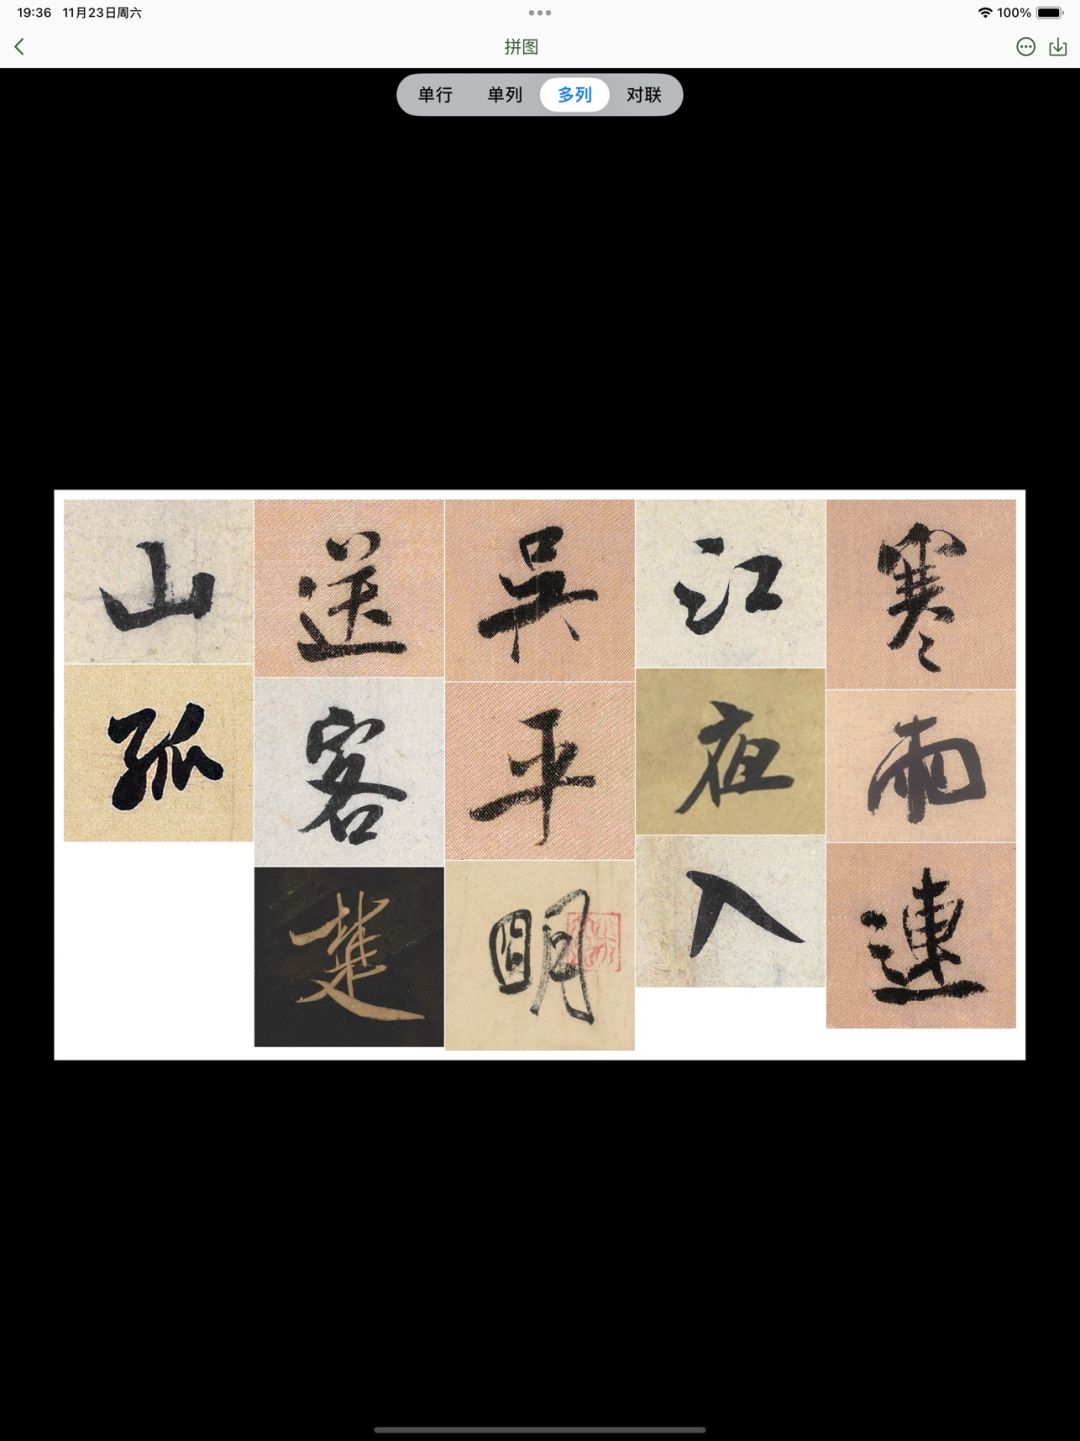 19:36 11月23日周六
100%
拼图
单行 单列 多列 对联
寒雨連
江夜入
吴平明
送客楚
山孤